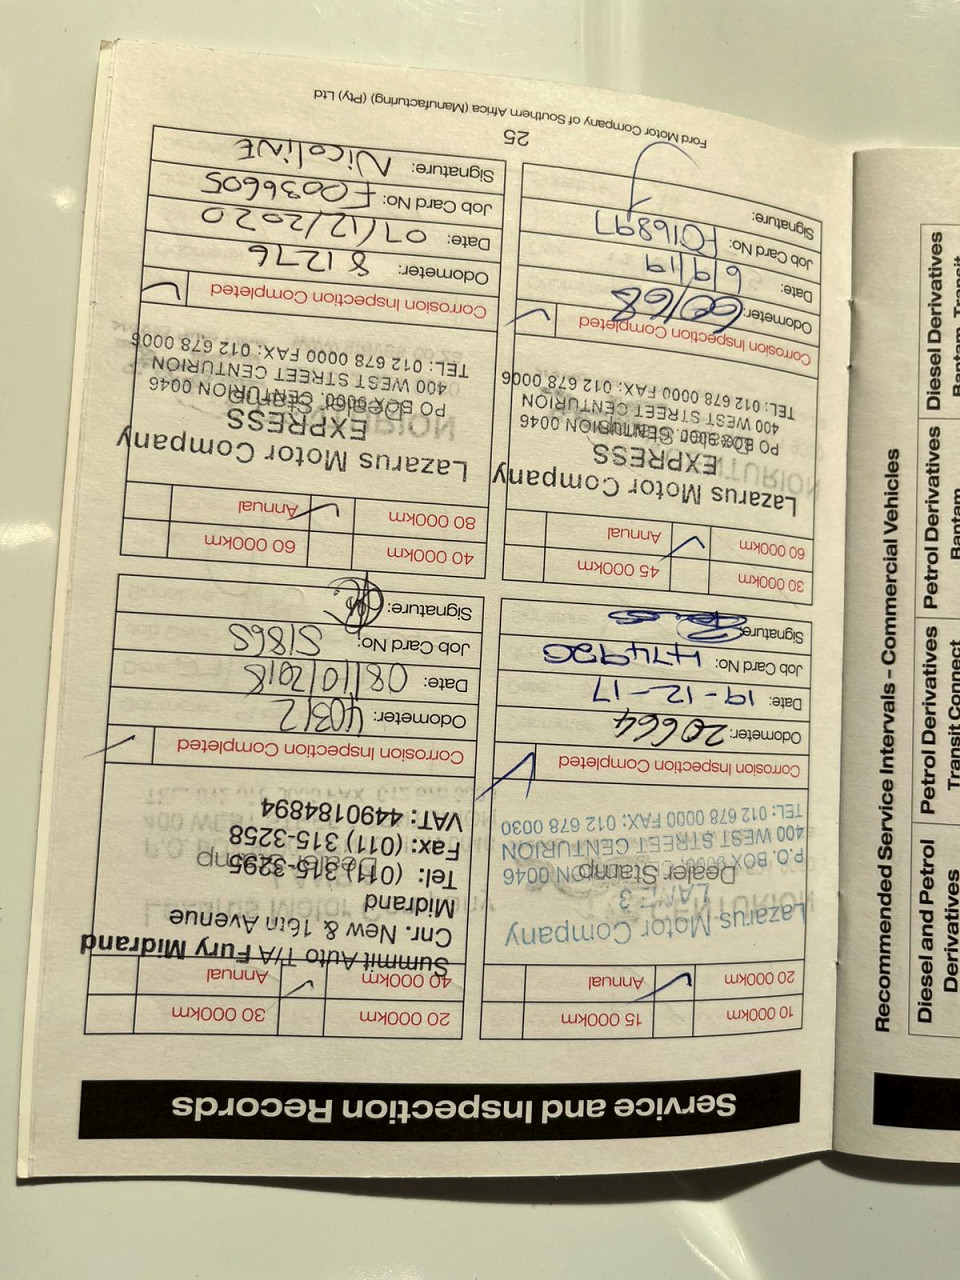 Service and Inspection Records
10 000km
15 000km
20 000km
Annual
Lazarus Motor Company
P.O. BOX
CENTURION 0046
Dealer Stamp
400 WEST STREET CENTURION
TEL: 012 678 0000 FAX: 012 678 0030
Corrosion Inspection Completed
Odometer: 20664
Date: 19-12-17
Job Card No: 474920
Signature:
20 000km
30 000km
40 000km
Annual
Summit Auto T/A Fury Midrand
Cnr. New & 16th Avenue
Midrand
Tel: (011) 315-3295
Dealer Stamp
Fax: (011) 315-3258
VAT: 4490184894
Corrosion Inspection Completed
Odometer: 40312
Date: 08/10/2018
Job Card No: 51865
Signature:
30 000km
45 000km
60 000km
Annual
Lazarus Motor Company
EXPRESS
PO BOX 9000, CENTURION 0046
400 WEST STREET CENTURION
TEL: 012 678 0000 FAX: 012 678 0006
Corrosion Inspection Completed
Odometer: 60168
Date: 6/9/19
Job Card No: F016897
Signature:
40 000km
60 000km
80 000km
Annual
Lazarus Motor Company
EXPRESS
Dealer Stamp
PO BOX 9000, CENTURION 0046
400 WEST STREET CENTURION
TEL: 012 678 0000 FAX: 012 678 0006
Corrosion Inspection Completed
Odometer: 81276
Date: 07/12/2020
Job Card No: F0036605
Signature: NicoliNE
25
Ford Motor Company of Southern Africa (Manufacturing) (Pty) Ltd
Recommended Service Intervals - Commercial Vehicles
Diesel and Petrol Derivatives
Petrol Derivatives
Transit Connect
Petrol Derivatives
Bantam
Diesel Derivatives
Bantam, Transit